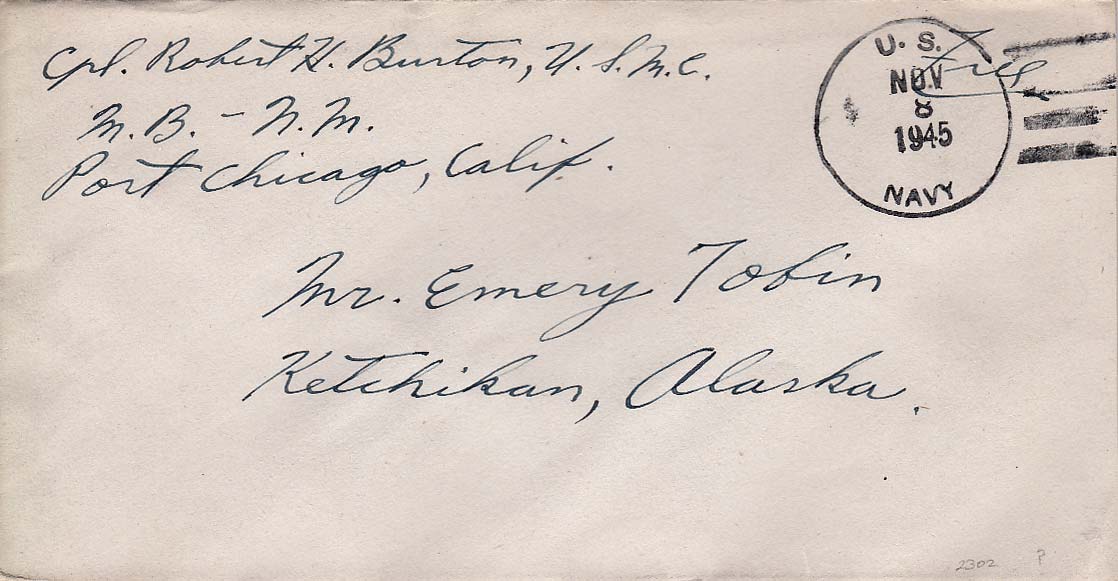 Cpl. Robert H. Burton, U.S.M.C.
M.B. - N.M.
Port Chicago, Calif.
Free
U. S.
NOV
8
1945
NAVY
Mr. Emery Tobin
Ketchikan, Alaska.
2302 P